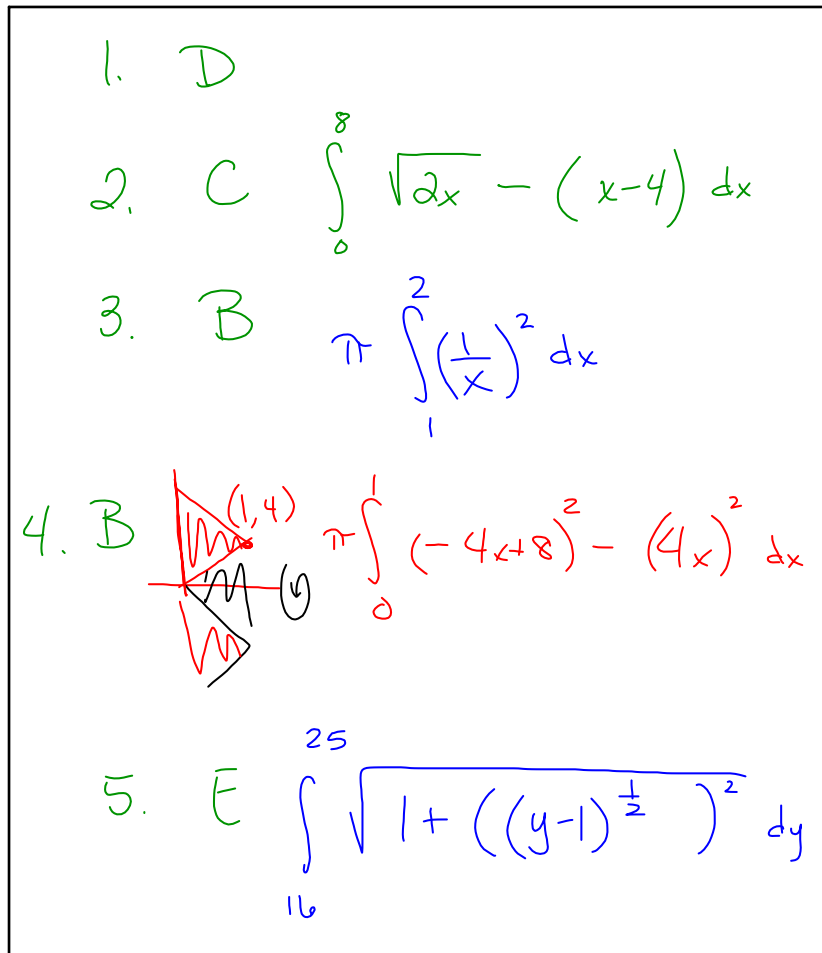 1. D
2. C ∫₀⁸ √(2x) − (x−4) dx
3. B π ∫₁² (1/x)² dx
4. B (1,4) π ∫₀¹ (−4x+8)² − (4x)² dx
5. E ∫₁₆²⁵ √(1+((y−1)^(1/2))²) dy